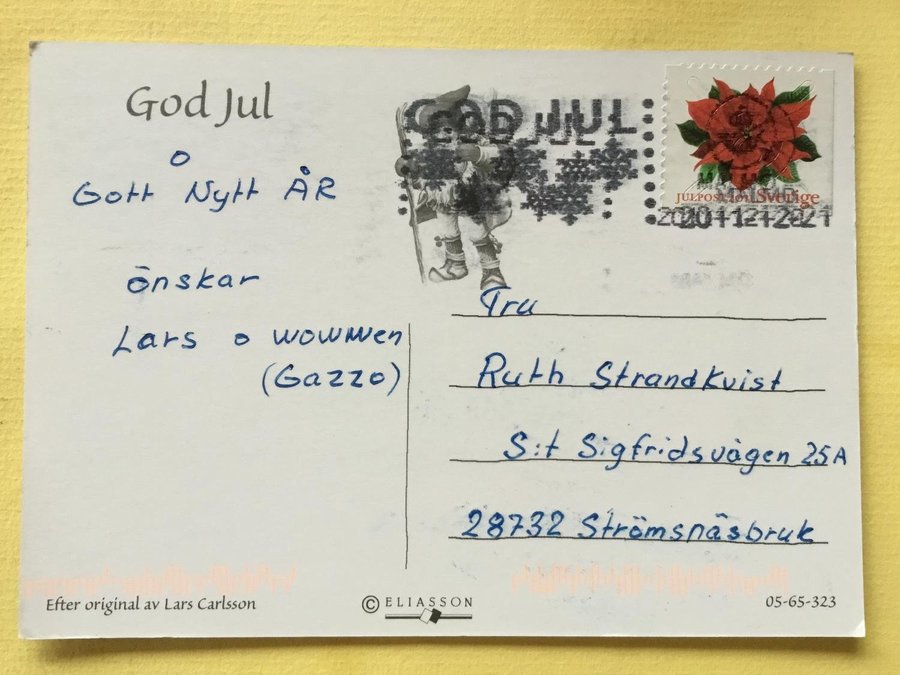 God Jul
o
Gott Nytt ÅR
önskar
Lars o wowwen
(Gazzo)
GOD JUL
JULPOST 2011 Sverige
Fru
Ruth Strandkvist
S:t Sigfridsvägen 25A
28732 Strömsnäsbruk
Efter original av Lars Carlsson
© ELIASSON
05-65-323